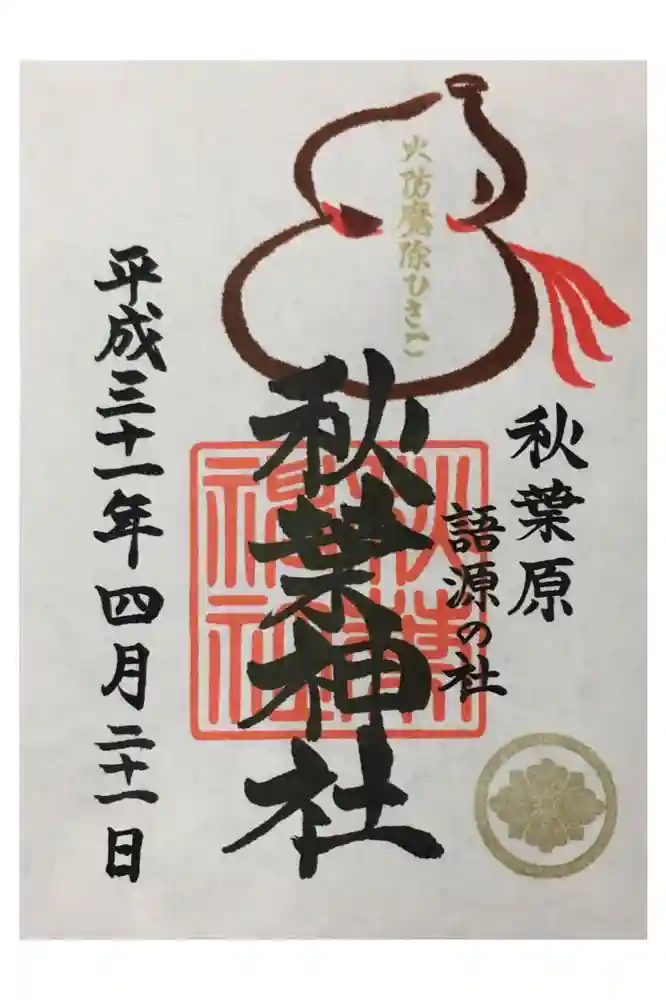 火防魔除ひさご
秋葉原
語源の社
秋葉神社
秋葉
神社
平成三十一年四月二十一日